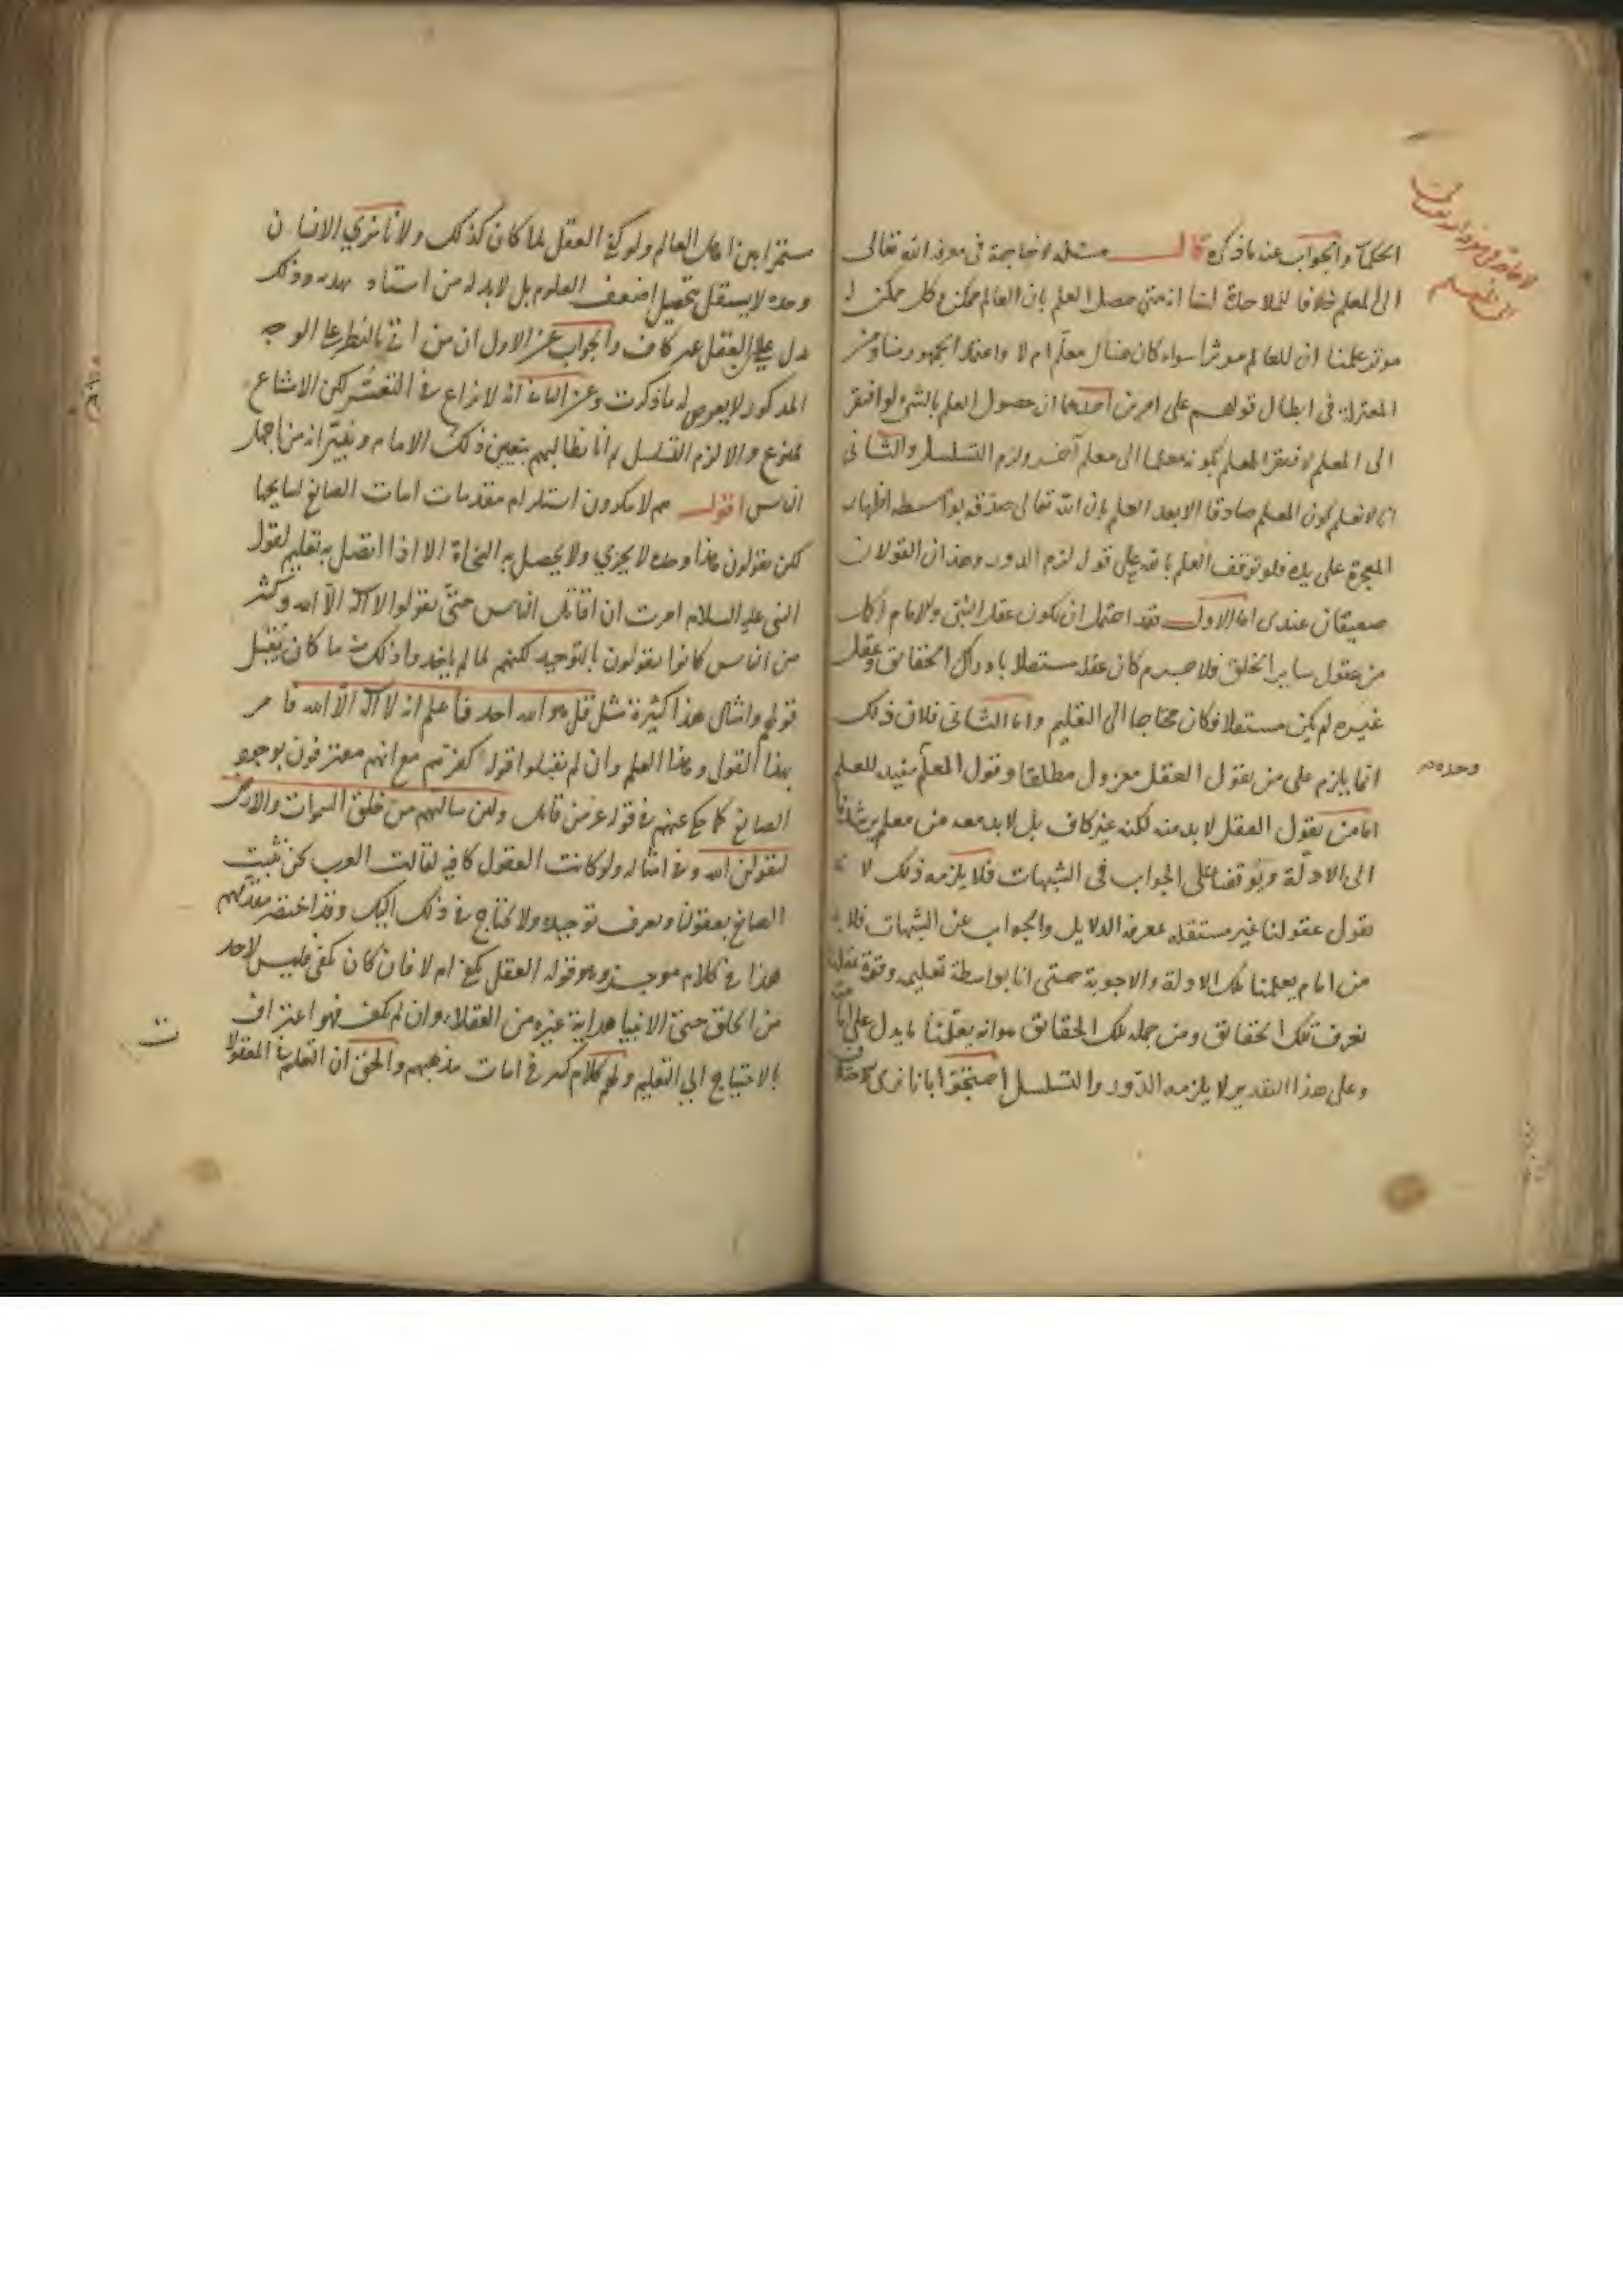 الحكماء والجواب عنه ما ذكره قال مسئله لا حاجة فى معرفة الله تعالى
الى المعلم خلافا للملاحدة لنا انه متى حصل العلم بان العالم ممكن وكل ممكن له
موثر علمنا ان للعالم موثرا سواء كان هناك معلم ام لا واعتماد الجمهور منا ومن
المعتزلة فى ابطال قولهم على امرين احدهما ان حصول العلم بالشئ لو افتقر
الى المعلم لافتقر المعلم بكونه معلما الى معلم آخر ولزم التسلسل والثانى
انا لا نعلم كون المعلم صادقا الا بعد العلم بان الله تعالى صدقه بواسطة اظهار
المعجزة على يده فلو توقف العلم بالله على قوله لزم الدور وهذان القولان
ضعيفان عندى اما الاول فقد احتمل ان يكون عقل النبى والامام اكمل
من عقول ساير الخلق فلا جرم كان عقله مستقلا بادراك الحقائق وعقل
غيره لم يكن مستقلا فكان محتاجا الى التعليم واما الثانى فلان ذلك
انما يلزم على من يقول العقل معزول مطلقا وقول المعلم مفيد للعلم
وحده
اما من يقول العقل لا بد منه لكنه غير كاف بل لا بد معه من معلم يرشدنا
الى الادلة ويوقفنا على الجواب فى الشبهات فلا يلزمه ذلك لانه
يقول عقولنا غير مستقلة بمعرفة الدلايل والجواب عن الشبهات فلا بد
من امام يعلمنا تلك الادلة والاجوبة حتى انا بواسطة تعليمه وقوة عقولنا
نعرف تلك الحقائق ومن جملة تلك الحقائق هو انه يعلمنا ما يدل على امامته
وعلى هذا التقدير لا يلزمه الدور والتسلسل احتجوا بانا نرى الاختلاف
مستمرا بين اهل العالم ولو كفى العقل لما كان كذلك ولانا نرى الانسان
وحده لا يستقل بتحصيل اضعف العلوم بل لا بد له من استاذ يهديه وذلك
يدل على ان العقل غير كاف والجواب عن الاول ان من اتى بالنظر على الوجه
المذكور لا يعرض له ما ذكرت وعن الثانى انه لا نزاع فى التعسر لكن الامتناع
ممنوع والا لزم التسلسل ثم انا نطالبهم بتعيين ذلك الامام ونبين انه من اجهل
الناس اقول هم لا ينكرون استلزام مقدمات اثبات الصانع لنتايجها
لكن يقولون هذا وحده لا يجزى ولا يحصل به النجاة الا اذا اتصل به تعليم لقول
النبى عليه السلام امرت ان اقاتل الناس حتى يقولوا لا اله الا الله وكثير
من الناس كانوا يقولون بالتوحيد لكنهم لما لم ياخذوا ذلك منه ما كان يقبل
قولهم وامثال هذا كثيرة مثل قل هو الله احد فاعلم انه لا اله الا الله فامر
بهذا القول وهذا العلم وان لم يقبلوا قوله كفرهم مع انهم معترفون بوجود
الصانع كما حكى عنهم فى قوله عز من قائل ولئن سالتهم من خلق السموات والارض
ليقولن الله وفى امثاله ولو كانت العقول كافية لقالت العرب نحن نثبت
الصانع بعقولنا ونعرف توحيده ولا نحتاج فى ذلك اليك وقد اختصر مقدمهم
هذا فى كلام موجز وهو قوله العقل يكفى ام لا فان كان يكفى فليس لاحد
من الخلق حتى الانبيا هداية غيره من العقلاء وان لم يكف فهو اعتراف
بالاحتياج الى التعليم ولهم كلام كثير فى اثبات مذهبهم والحق ان التعليم فى المعقولات